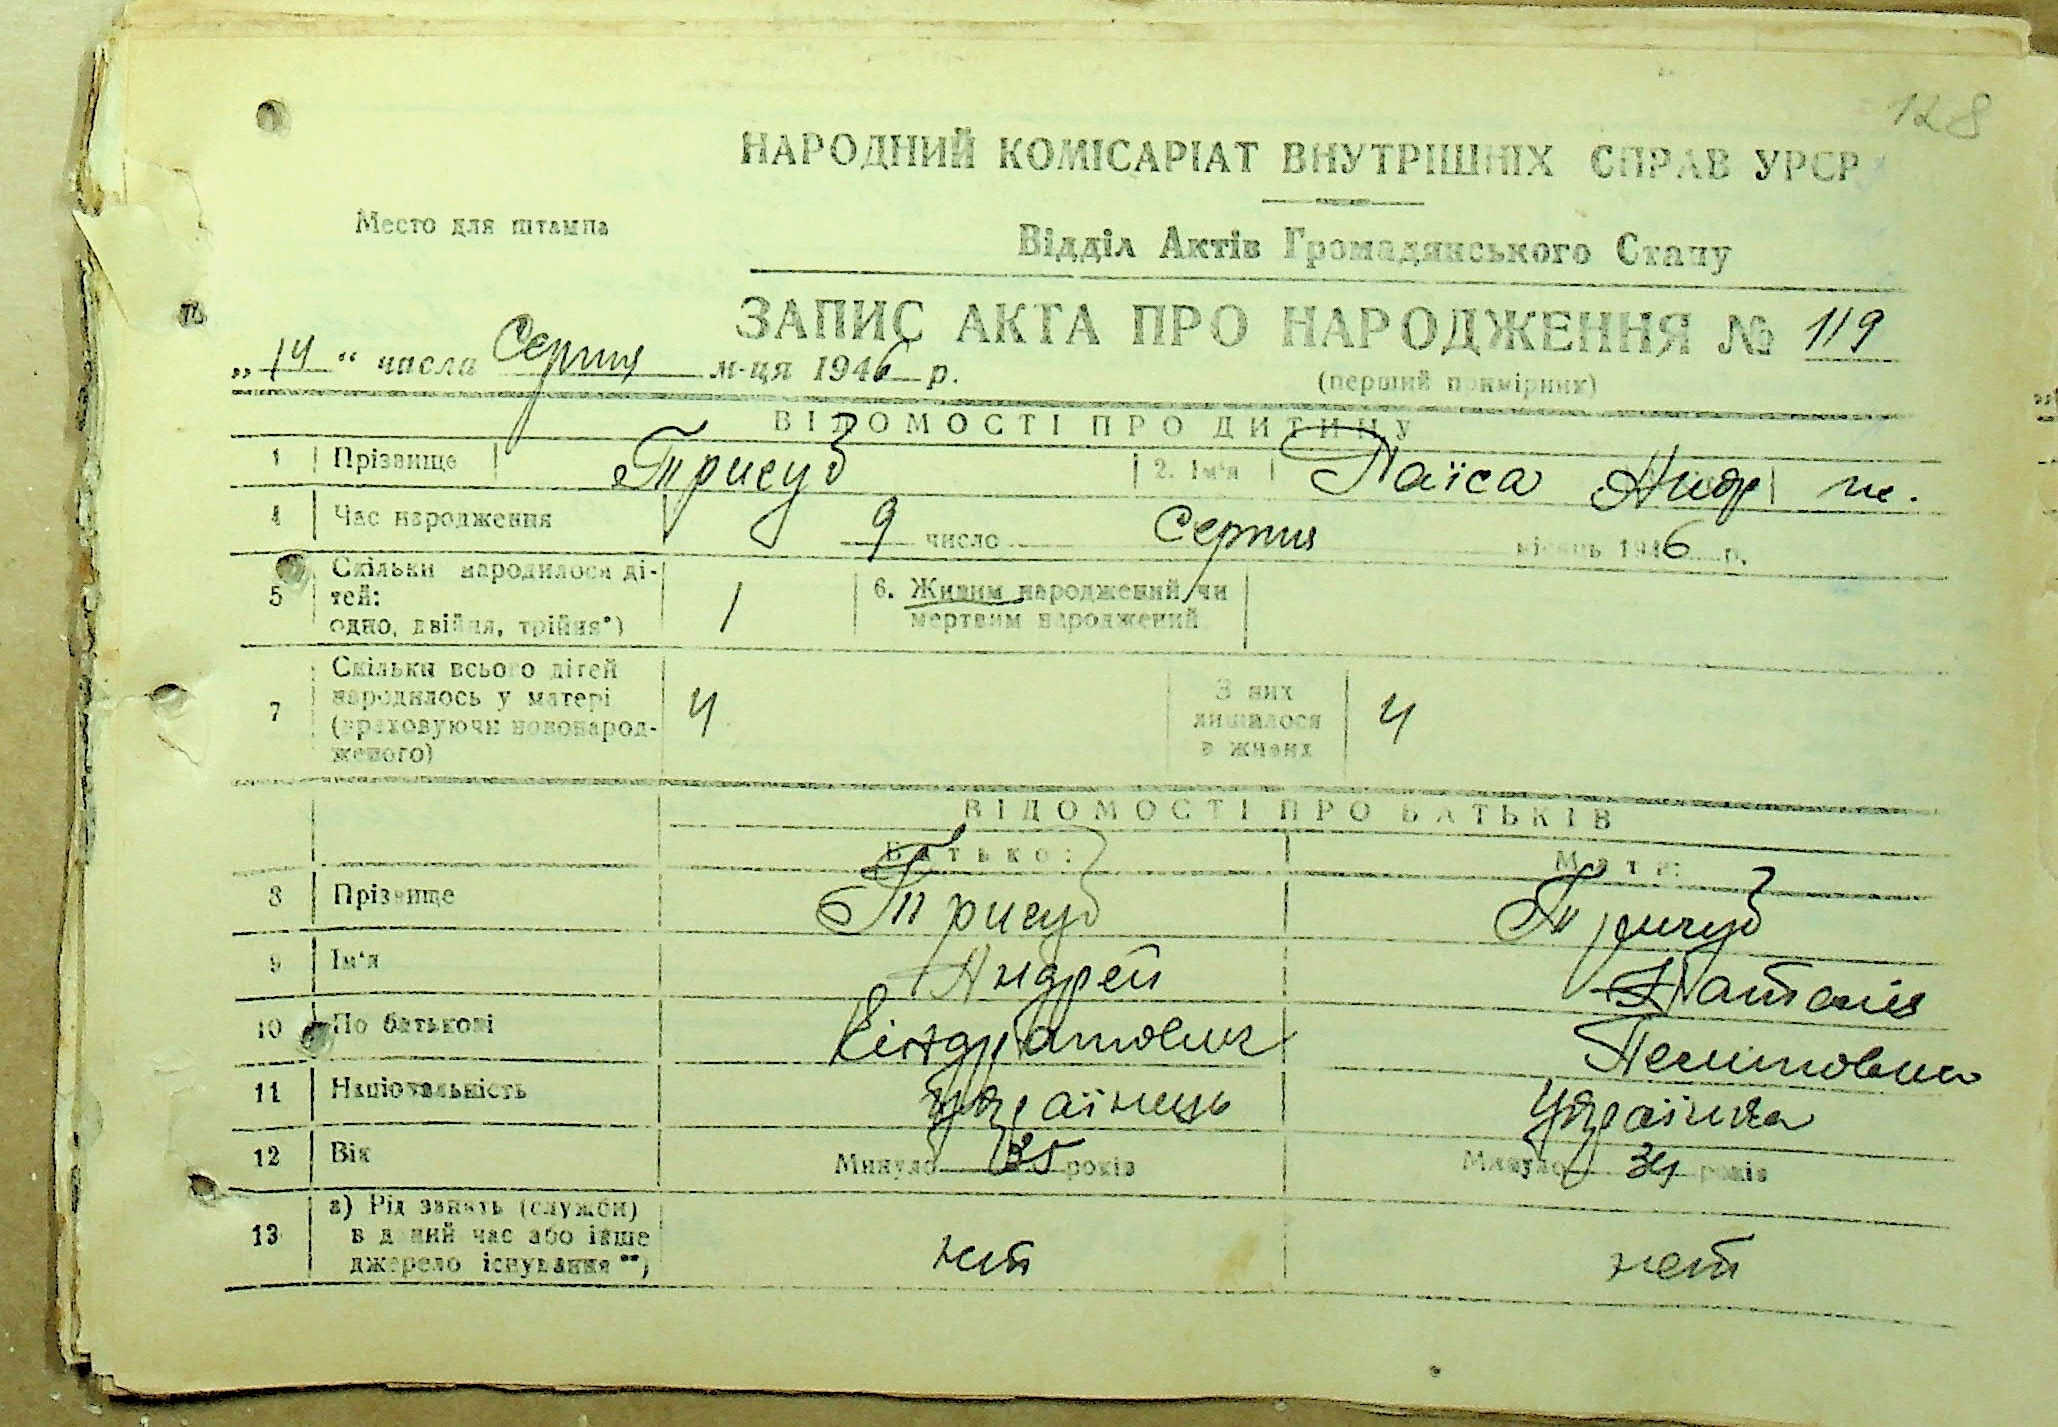 128
НАРОДНИЙ КОМІСАРІАТ ВНУТРІШНІХ СПРАВ УРСР
Место для штампа
Відділ Актів Громадянського Стану
ЗАПИС АКТА ПРО НАРОДЖЕННЯ № 119
„14“ числа Серпня м-ця 1946 р.
(перший примірник)
ВІДОМОСТІ ПРО ДИТИНУ
1 Прізвище Трисуб 2. Ім'я Раїса Андр ж.
4 Час народження 9 число Серпня місяць 1946 р.
5 Скільки народилося дітей: одно, двійня, трійня*) 1 6. Живим народжений чи мертвим народжений
7 Скільки всього дітей народилось у матері (враховуючи новонародженого) 4 З них лишилося в живих 4
ВІДОМОСТІ ПРО БАТЬКІВ
Батько: Мати:
8 Прізвище Трисуб Тричуб
9 Ім'я Андрей Наталія
10 По батькові Кіндратович
11 Національність Українець Українка
12 Вік Минуло 35 років Минуло 34 років
13 а) Рід занять (служби) в даний час або інше джерело існування**) нет нет